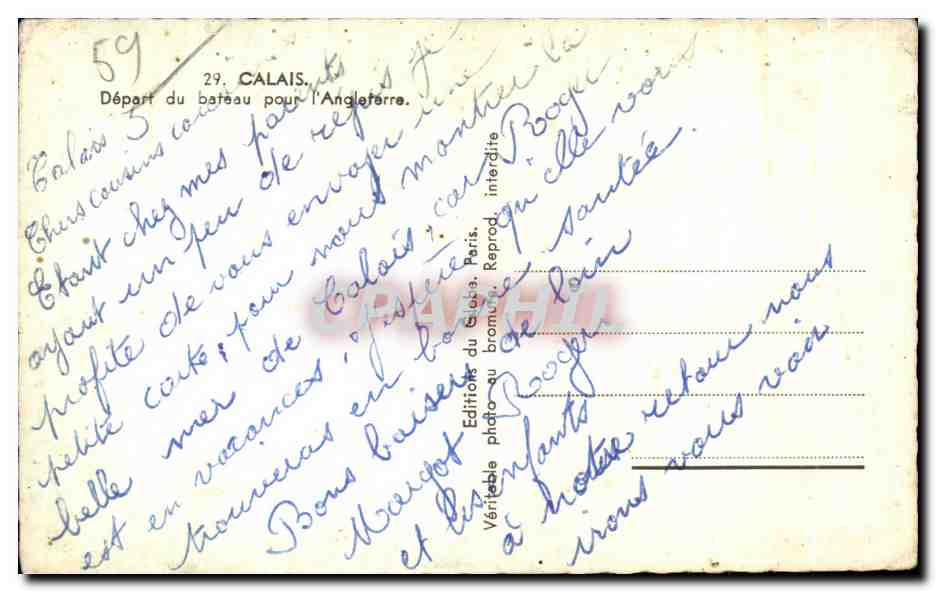 59
29. CALAIS.
Départ du bateau pour l'Angleterre.
Calais 5
Chers cousins
Etant chez mes parents
ayant un peu de repos je
profite de vous envoyer une
petite carte, pour vous montrer la
belle mer de Calais, car Roger
est en vacances, j'espère qu'elle vous
trouveras en bonne santée.
Bons baisers de loin
Margot Roger
et les enfants
à notre retour nous
irons vous voir
Editions du Globe. Paris.
Véritable photo au bromure. Reprod. interdite
CPARHIL